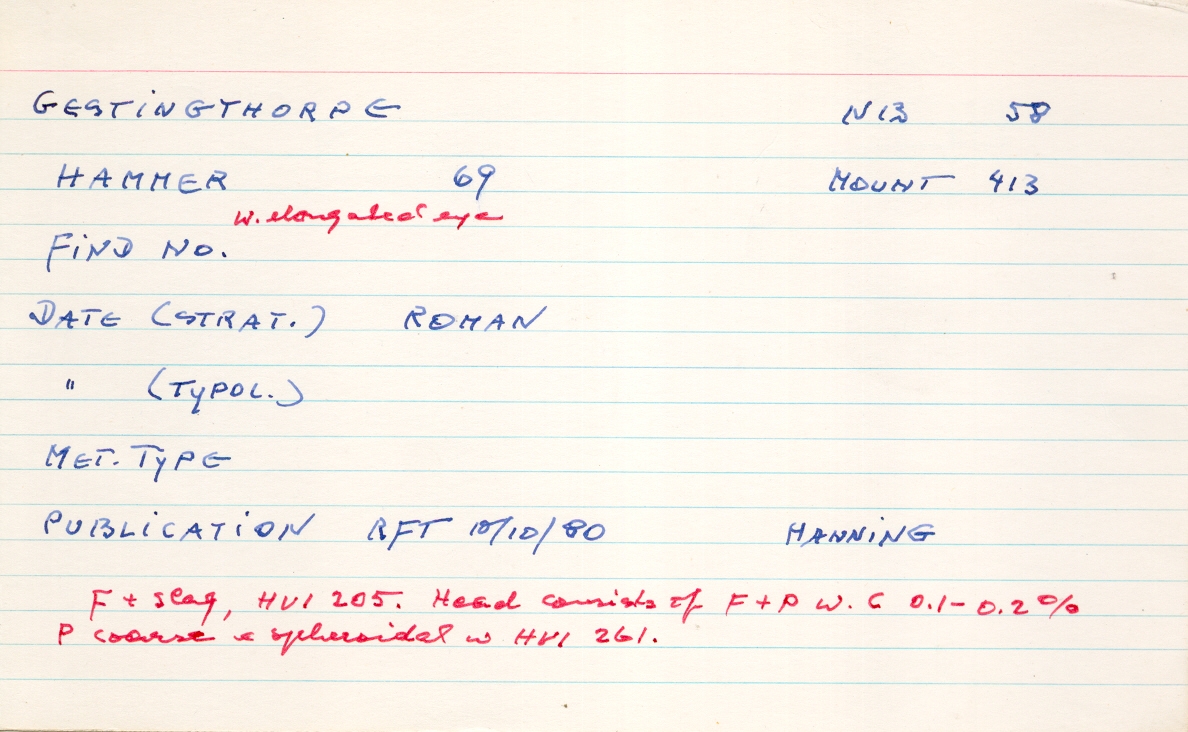 GESTINGTHORPE N13 58
HAMMER 69 MOUNT 413
w. elongated eye
FIND NO.
DATE (STRAT.) ROMAN
" (TYPOL.)
MET. TYPE
PUBLICATION RFT 10/10/80 MANNING
F + slag, HV1 205. Head consists of F + P w. C 0.1 - 0.2%
P coarse & spheroidal w HV1 261.